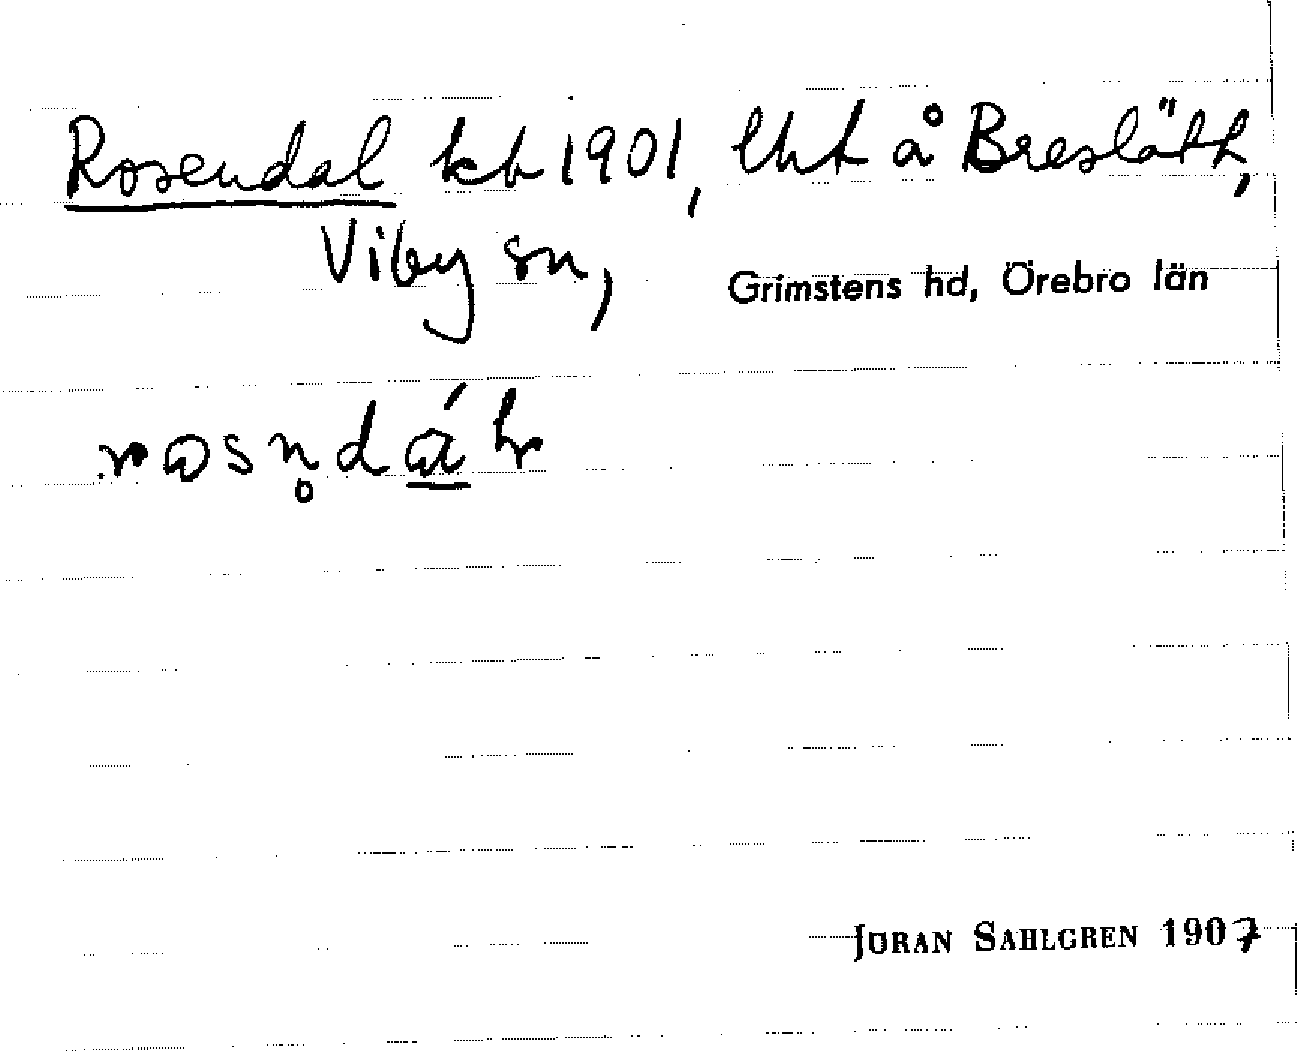 Rosendal kb 1901, lht å Breslätt,
Viby sn, Grimstens hd, Örebro län
JÖRAN SAHLGREN 1907